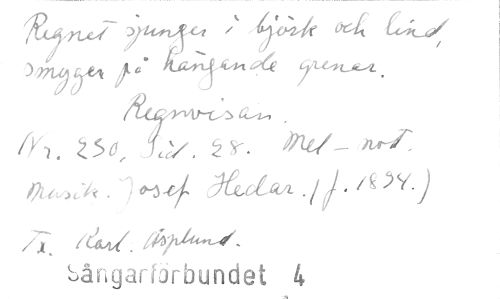 Regnet sjunger i björk och lind,
smyger på hängande grenar.
Regnvisan.
Nr. 230, Sid. 28. Mel-not.
Musik. Josef Hedar. (f. 1894.)
Tx. Karl. Asplund.
Sångarförbundet 4